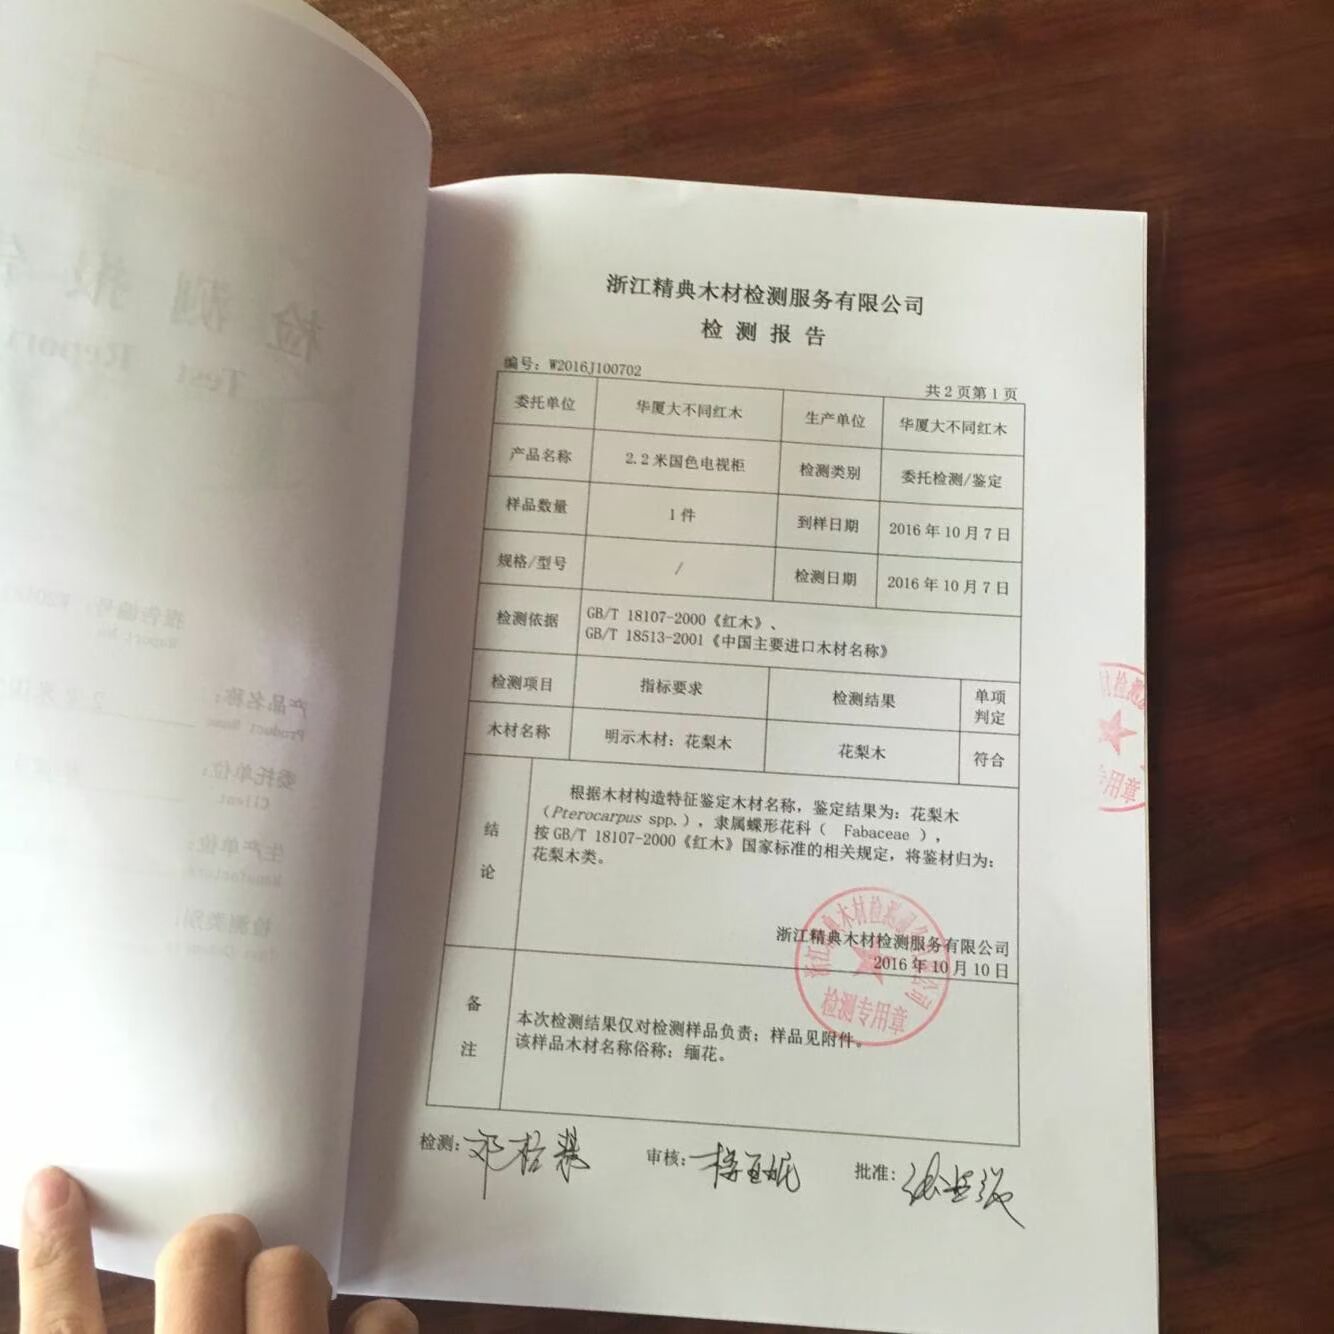 浙江精典木材检测服务有限公司
检测报告
编号：W2016J100702
共2页第1页
委托单位 华厦大不同红木 生产单位 华厦大不同红木
产品名称 2.2米国色电视柜 检测类别 委托检测/鉴定
样品数量 1件 到样日期 2016年10月7日
规格/型号 / 检测日期 2016年10月7日
检测依据 GB/T 18107-2000《红木》、
GB/T 18513-2001《中国主要进口木材名称》
检测项目 指标要求 检测结果 单项
判定
木材名称 明示木材：花梨木 花梨木 符合
结论
根据木材构造特征鉴定木材名称，鉴定结果为：花梨木
（Pterocarpus spp.），隶属蝶形花科（ Fabaceae ），
按GB/T 18107-2000《红木》国家标准的相关规定，将鉴材归为：
花梨木类。
浙江精典木材检测服务有限公司
2016年10月10日
浙江精典木材检测服务有限公司
检测专用章
备注
本次检测结果仅对检测样品负责；样品见附件。
该样品木材名称俗称：缅花。
检测：
审核：
批准：
材检测
专用章
检测报告
Test Report
报告编号：
Report No
产品名称：
Product Name
委托单位：
Client
生产单位：
检测类别：